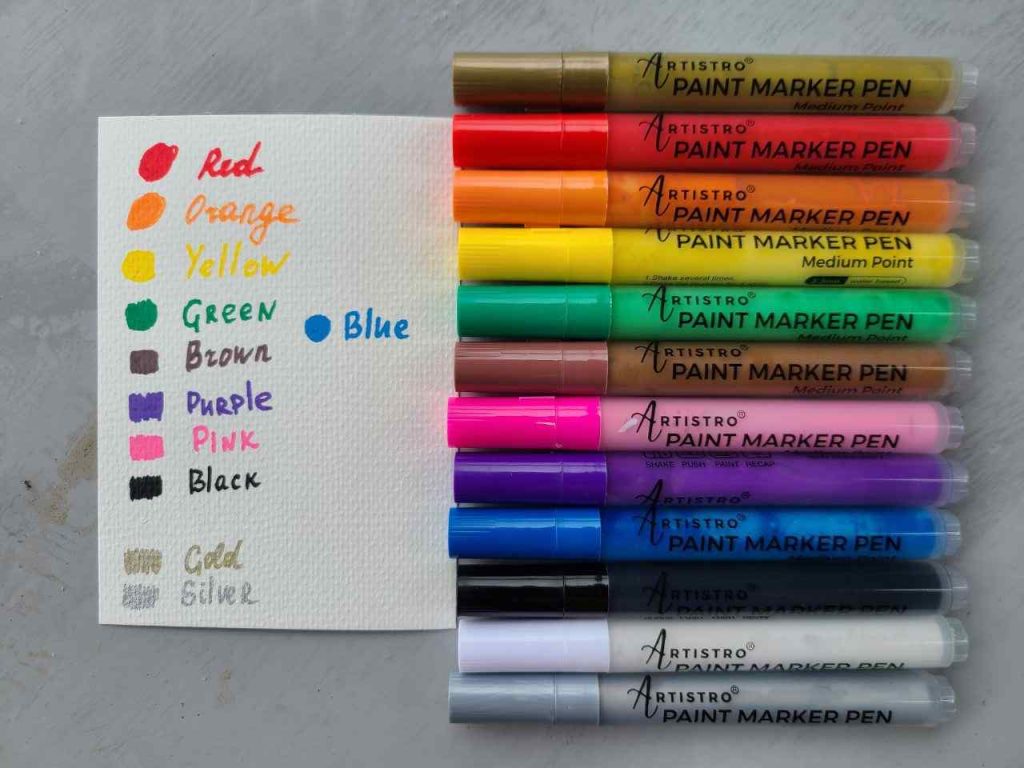 Red
Orange
Yellow
Green
Blue
Brown
Purple
Pink
Black
Gold
Silver
ARTISTRO®
PAINT MARKER PEN
Medium Point
ARTISTRO®
PAINT MARKER PEN
Medium Point
ARTISTRO®
PAINT MARKER PEN
PAINT MARKER PEN
Medium Point
1. Shake several times.
water based
ARTISTRO®
PAINT MARKER PEN
Medium Point
ARTISTRO®
PAINT MARKER PEN
Medium Point
ARTISTRO®
PAINT MARKER PEN
SHAKE PUSH PAINT RECAP
ARTISTRO
ARTISTRO®
PAINT MARKER PEN
ARTISTRO®
PAINT MARKER PEN
ARTISTRO®
PAINT MARKER PEN
ARTISTRO®
PAINT MARKER PEN